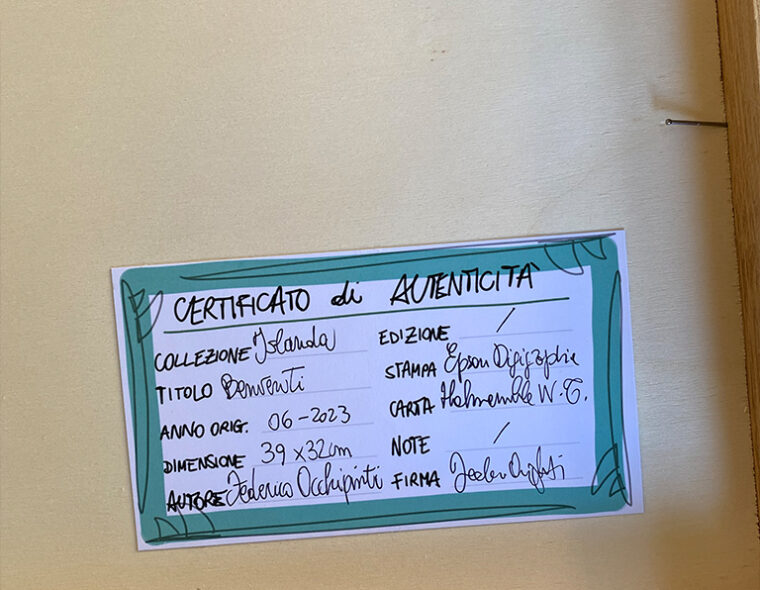 CERTIFICATO di AUTENTICITÀ
COLLEZIONE Islanda
TITOLO Benvenuti
ANNO ORIG. 06-2023
DIMENSIONE 39 x 32cm
AUTORE Federico Occhipinti
EDIZIONE /
STAMPA Epson Digigraphie
CARTA Hahnemühle W.T.
NOTE /
FIRMA